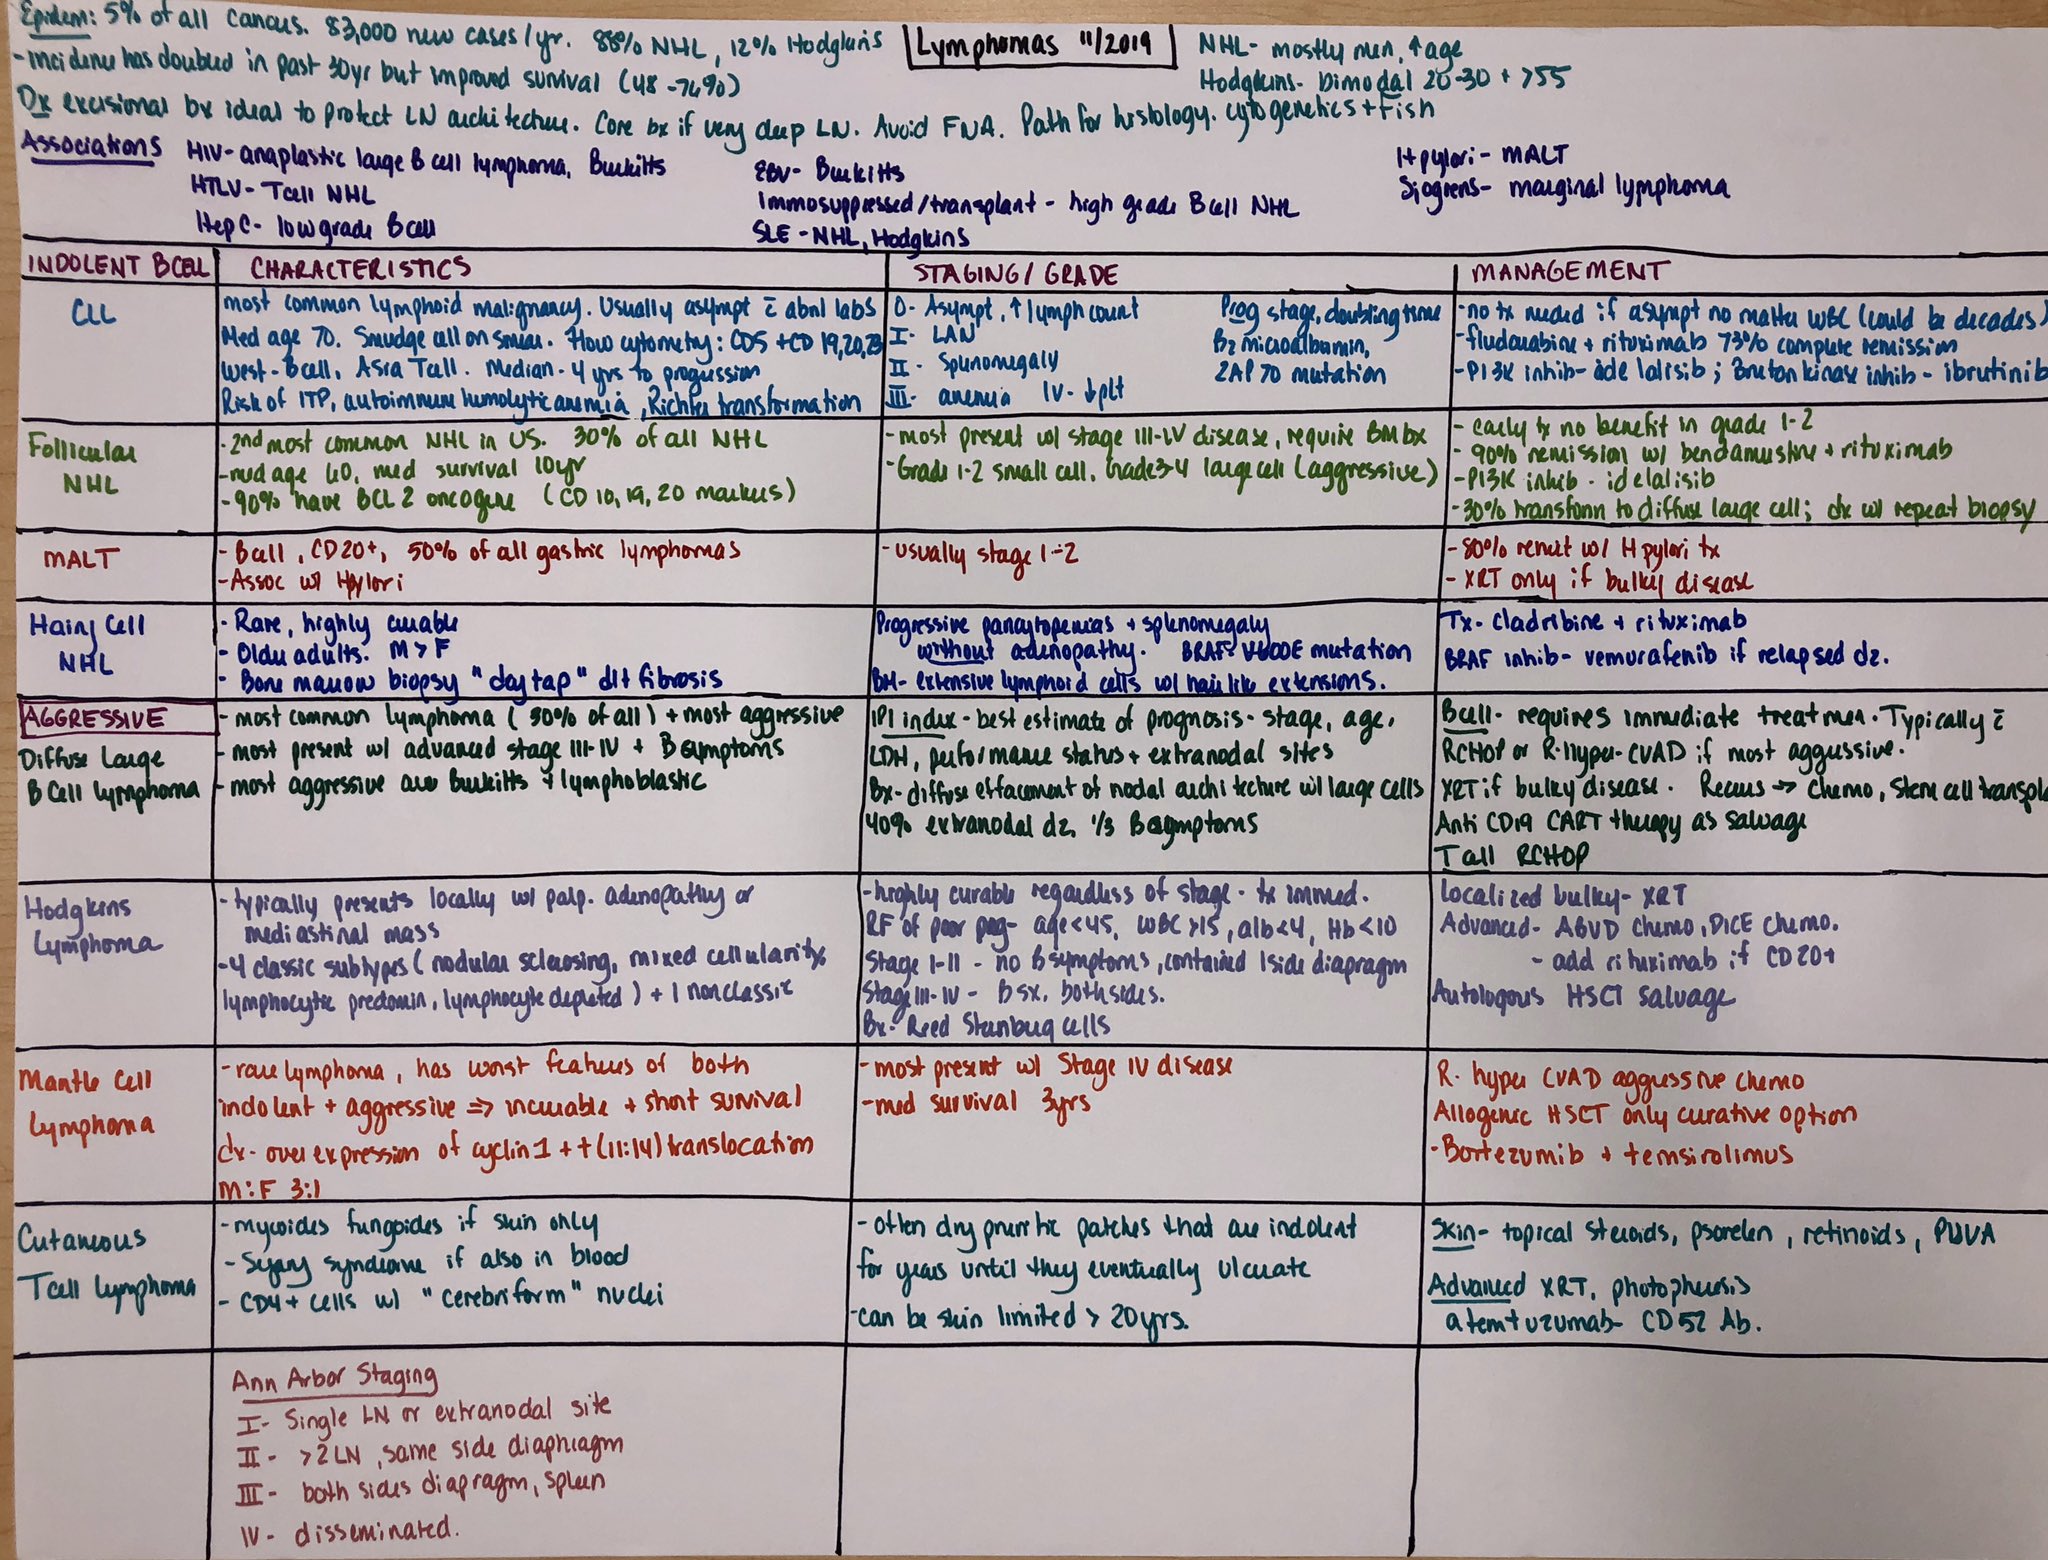 Epidem: 5% of all cancers. 83,000 new cases/yr. 88% NHL, 12% Hodgkins
Lymphomas 11/2019
NHL- mostly men, ↑age
- incidence has doubled in past 30yr but improved survival (48-74%)
Hodgkins- bimodal 20-30 + >55
Dx excisional bx ideal to protect LN architecture. Core bx if very deep LN. Avoid FNA. Path for histology. cytogenetics + fish
Associations
HIV- anaplastic large B cell lymphoma, Burkitts
HTLV- T cell NHL
Hep C- low grade B cell
EBV- Burkitts
Immosuppressed/transplant - high grade B cell NHL
SLE - NHL, Hodgkins
H pylori- MALT
Sjogrens- marginal lymphoma
INDOLENT B CELL
CHARACTERISTICS
STAGING/GRADE
MANAGEMENT
CLL
most common lymphoid malignancy. Usually asympt c̄ abnl labs
Med age 70. Smudge cell on smear. Flow cytometry: CD5 + CD 19,20,23
West- B cell, Asia T cell. Median- 4 yrs to progression
Risk of ITP, autoimmune hemolytic anemia, Richter transformation
0- Asympt, ↑ lymph count
I- LAN
II- Splenomegaly
III- anemia IV- ↓plt
Prog stage, doubling time
B2 microalbumin,
ZAP 70 mutation
- no tx needed if asympt no matter WBC (could be decades)
- fludarabine + rituximab 73% complete remission
- PI3K inhib- idelalisib; Bruton kinase inhib - ibrutinib
Follicular
NHL
- 2nd most common NHL in US. 30% of all NHL
- med age 60, med survival 10yr
- 90% have BCL 2 oncogene (CD 10, 19, 20 markers)
- most present w/ stage III-IV disease, require BM bx
- Grade 1-2 small cell, Grade 3-4 large cell (aggressive)
- early tx no benefit in grade 1-2
- 90% remission w/ bendamustine + rituximab
- PI3K inhib - idelalisib
- 30% transform to diffuse large cell; dx w/ repeat biopsy
MALT
- B cell, CD20+, 50% of all gastric lymphomas
- Assoc w/ H pylori
- usually stage 1-2
- 80% remit w/ H pylori tx
- XRT only if bulky disease
Hairy Cell
NHL
- Rare, highly curable
- Older adults. M > F
- Bone marrow biopsy "dry tap" d/t fibrosis
Progressive pancytopenias + splenomegaly
without adenopathy. BRAF- V600E mutation
BM- extensive lymphoid cells w/ hair like extensions.
Tx- Cladribine + rituximab
BRAF inhib- vemurafenib if relapsed dz.
AGGRESSIVE
Diffuse Large
B Cell Lymphoma
- most common lymphoma (30% of all) + most aggressive
- most present w/ advanced stage III-IV + B symptoms
- most aggressive are Burkitts + lymphoblastic
IPI index - best estimate of prognosis - stage, age,
LDH, performance status + extranodal sites
Bx- diffuse effacement of nodal architecture w/ large cells
40% extranodal dz, 1/3 B symptoms
B cell- requires immediate treatmen. Typically c̄
RCHOP or R-hyper-CVAD if most aggressive.
XRT if bulky disease. Recurs → chemo, Stem cell transpla
Anti CD19 CART therapy as salvage
T cell RCHOP
Hodgkins
lymphoma
- typically presents locally w/ palp. adenopathy or
mediastinal mass
- 4 classic subtypes (nodular sclerosing, mixed cellularity,
lymphocytic predomin, lymphocyte depleted) + 1 nonclassic
- highly curable regardless of stage - tx immed.
RF of poor prog- age<45, WBC >15, alb<4, Hb<10
Stage I-II - no B symptoms, contained 1 side diaphragm
Stage III-IV - B sx, both sides.
Bx- Reed Sternburg cells
Localized bulky- XRT
Advanced- ABVD chemo, DICE chemo.
- add rituximab if CD20+
Autologous HSCT salvage
Mantle Cell
Lymphoma
- rare lymphoma, has worst features of both
indolent + aggressive ⇒ incurable + short survival
dx- over expression of cyclin 1 + t(11:14) translocation
M:F 3:1
- most present w/ Stage IV disease
- med survival 3yrs
R- hyper CVAD aggressive chemo
Allogenic HSCT only curative option
- Bortezumib + temsirolimus
Cutaneous
T cell Lymphoma
- mycoides fungoides if skin only
- Sezary syndrome if also in blood
- CD4+ cells w/ "cerebriform" nuclei
- Often dry pruritic patches that are indolent
for years until they eventually ulcerate
- can be skin limited > 20yrs.
Skin- topical steroids, psorelen, retinoids, PUVA
Advanced XRT, photopheresis
atemtuzumab- CD52 Ab.
Ann Arbor Staging
I- Single LN or extranodal site
II- >2 LN, same side diaphragm
III- both sides diapragm, spleen
IV- disseminated.